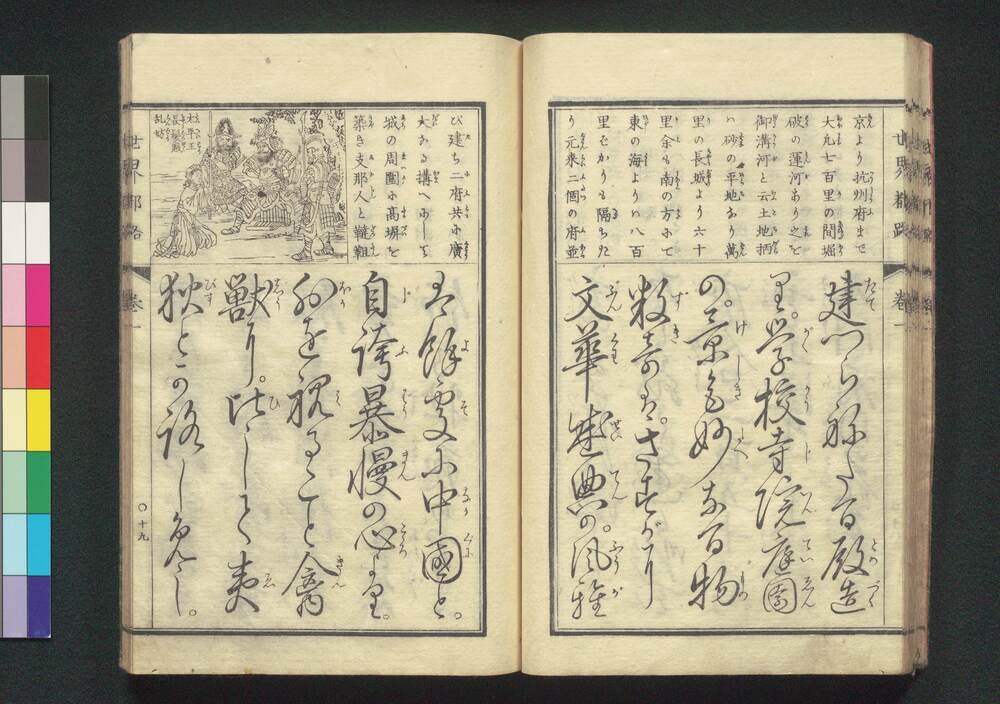 世界都路 巻一
京より抗州府まで
大凡七百里の間堀
破の運河あり之を
御溝河と云土地柄
ハ砂の平地なり萬
里の長城より六十
里余も南の方にて
東の海よりハ八百
里ばかりも隔ちた
り元来二個の府並
建つらねたる殿造
里。学校寺院庭園
の。景色妙なる百物
数奇は。さすがに
文華盛典の。風雅
び建ち二府共に廣
大なる構へにして
城の周圍に高塀を
築き支那人と韃靼
太平王
長髪賊
乱妨
は餘処に中國と。
自誇暴慢の心より。
外を視ること禽
獣に。比して夷
狄と
世界都路 巻一 〇十九